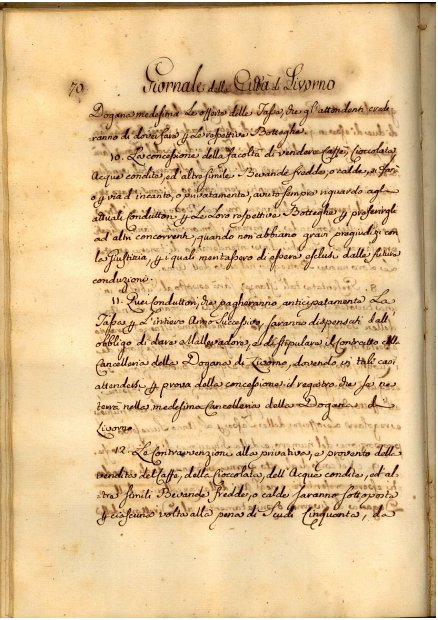 70 Giornale della Città di Livorno
Dogana medesima le offerte delle Tasse, che gl'attendenti crede
ranno di dover fare p le respettive Botteghe.
10. La concessione della facoltà di vendere Caffè, Cioccolata
Acque condite, ed altre simili Bevande fredde, o calde, si farà
p via d'incanto, o privatamente, avuto sempre riguardo agl'
attuali Conduttori p le loro respettive Botteghe p preferirgli
ad altri concorrenti, quando non abbiano gravi pregiudizi con
la Giustizia, p i quali meritassero di essere esclusi dalla futura
conduzione.
11. Quei Conduttori, che pagheranno anticipatamente La
Tassa p L'intiero Anno successivo, saranno dispensati dall'
obbligo di dare Mallevadore, e di stipulare il Contratto nella
Cancelleria della Dogana di Livorno, dovendo in tali casi
attendersi p prova della concessione il registro, che se ne
terrà nella medesima Cancelleria della Dogana di
Livorno
12. Le Contravvenzioni alla privativa, e provento della
vendita del Caffè, della Cioccolata, dell'Acque condite, ed al
tre simili Bevande fredde, o calde saranno sottoposte
p ciascuna volta alla pena di Scudi Cinquanta, da